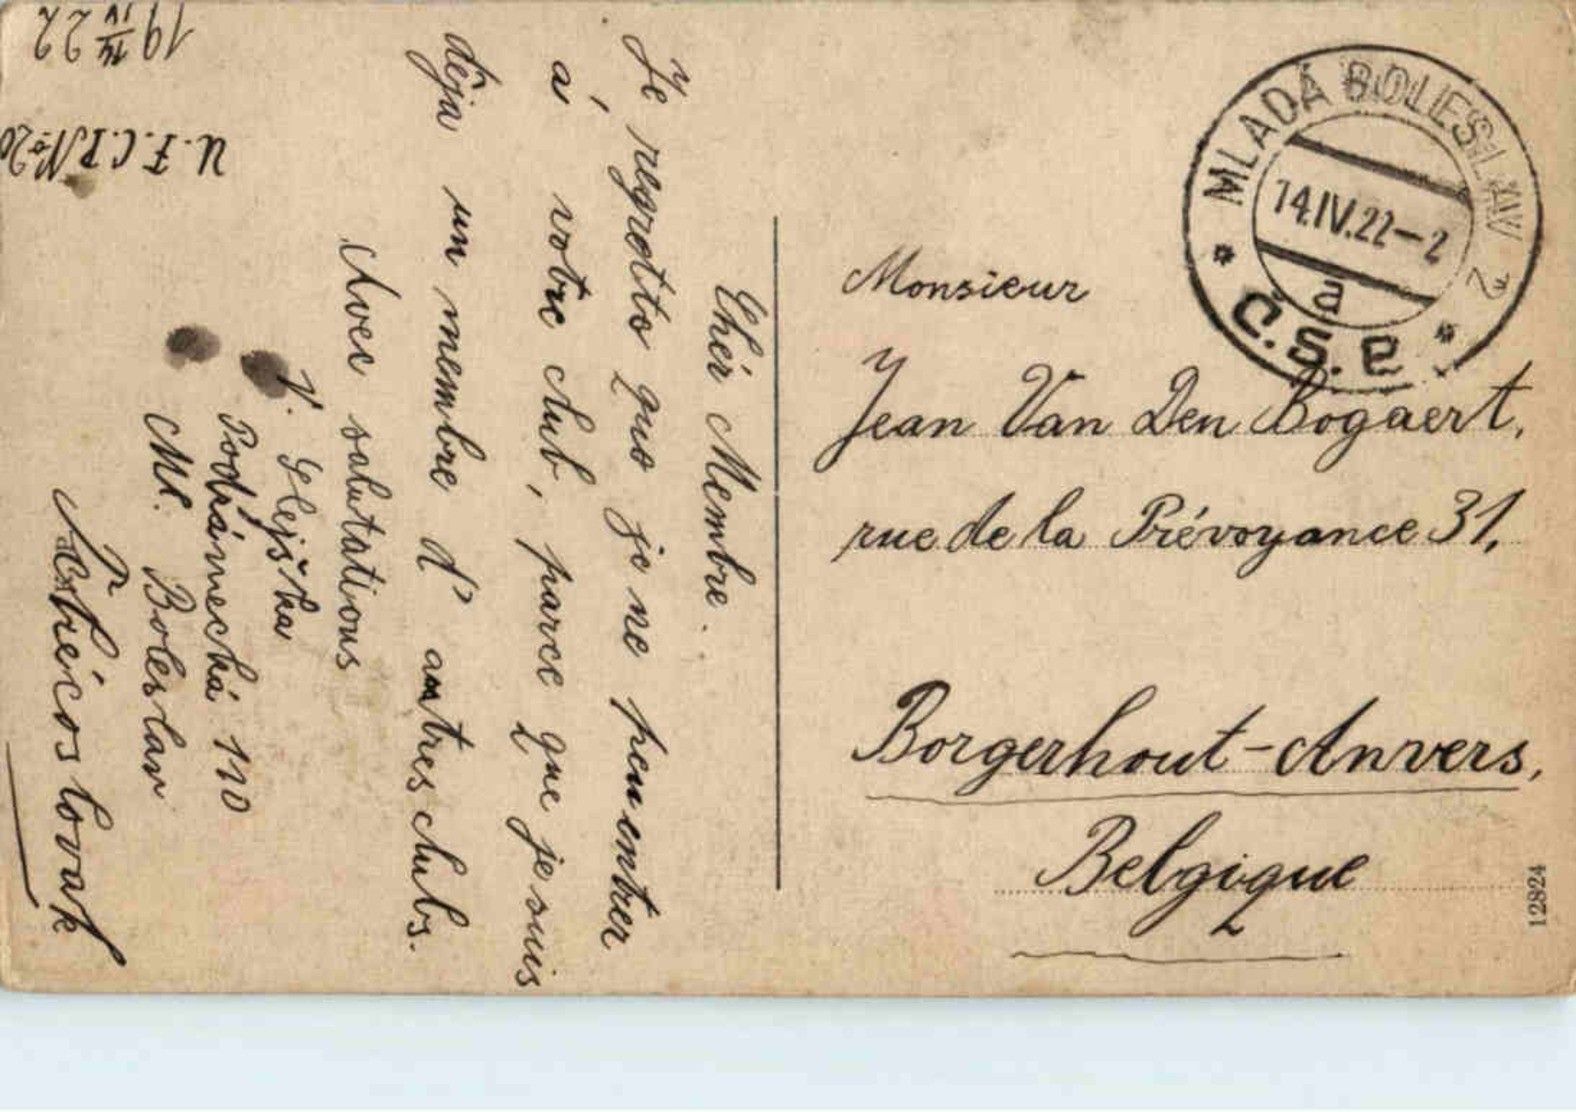 19 14/IV 22
U.F.C.P. No 20
Chér Membre.
Je regrette que je ne peu entrer
á votre club, parce que je suis
déja un membre d'autres clubs.
Avec salutations
V. Hejška
Podzámecká 110
Ml. Boleslav
Tchécoslovak
MLADÁ BOLESLAV 2
14.IV.22-2
a
Č.S.P.
Monsieur
Jean Van Den Bogaert,
rue de la Prévoyance 31,
Borgerhout-Anvers,
Belgique
12824